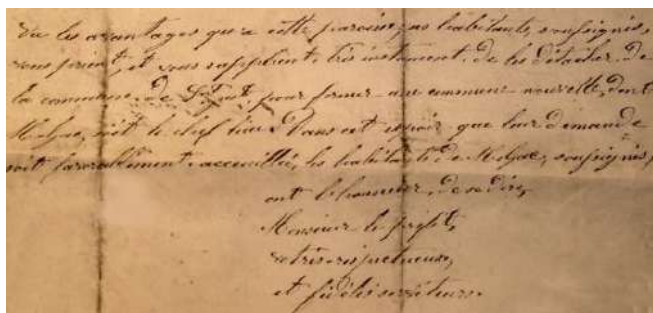 Vu les avantages qu'a cette paroisse, vos habitants, soussignés,
vous prient, et vous supplient très instament, de les détacher de
la commune de St pour former une commune nouvelle, dont
Meljac, soit le chef lieu. Dans cet espoir que leur demande
soit favorablement accueillie, les habitants de Meljac, soussignés,
ont l'honneur, de se dire,
Monsieur le préfet,
vos très respectueux,
et fidèles serviteurs.